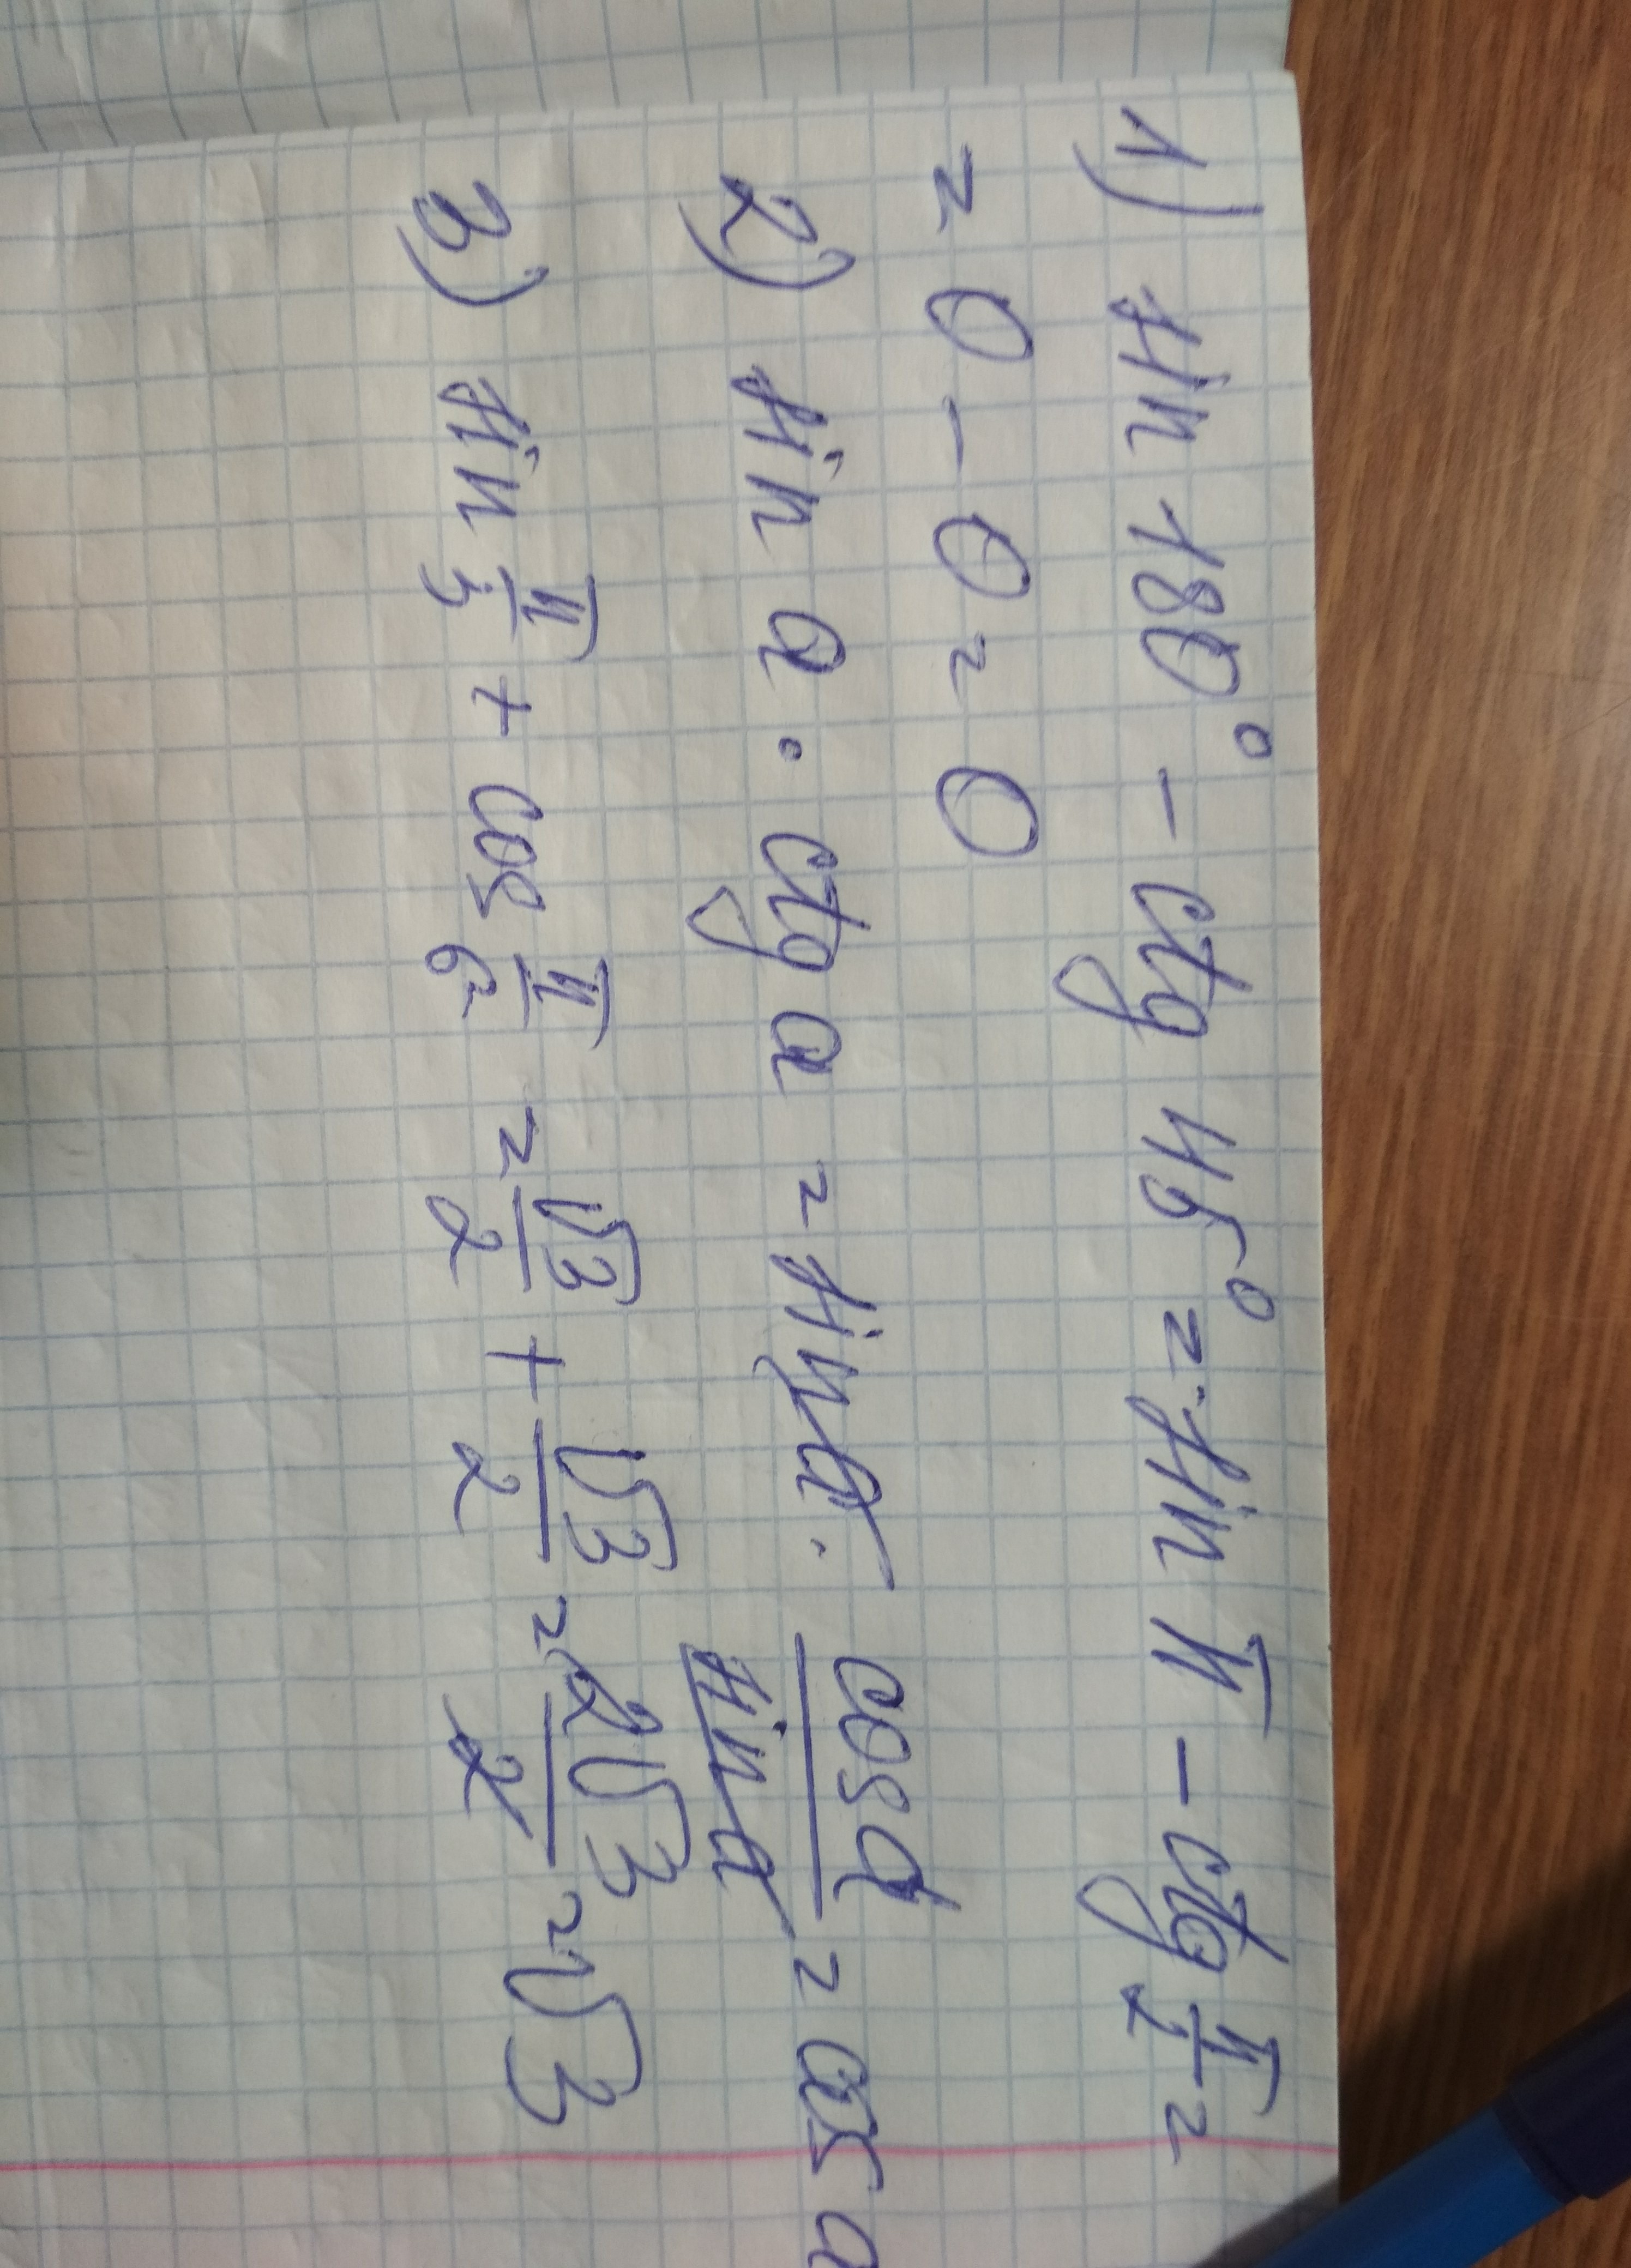 1) sin 180° - ctg 45° = sin π - ctg π/2 =
= 0 - 0 = 0
2) sin a · ctg a = sin a · cos a / sin a = cos a
3) sin π/3 + cos π/6 = √3/2 + √3/2 = 2√3/2 = √3